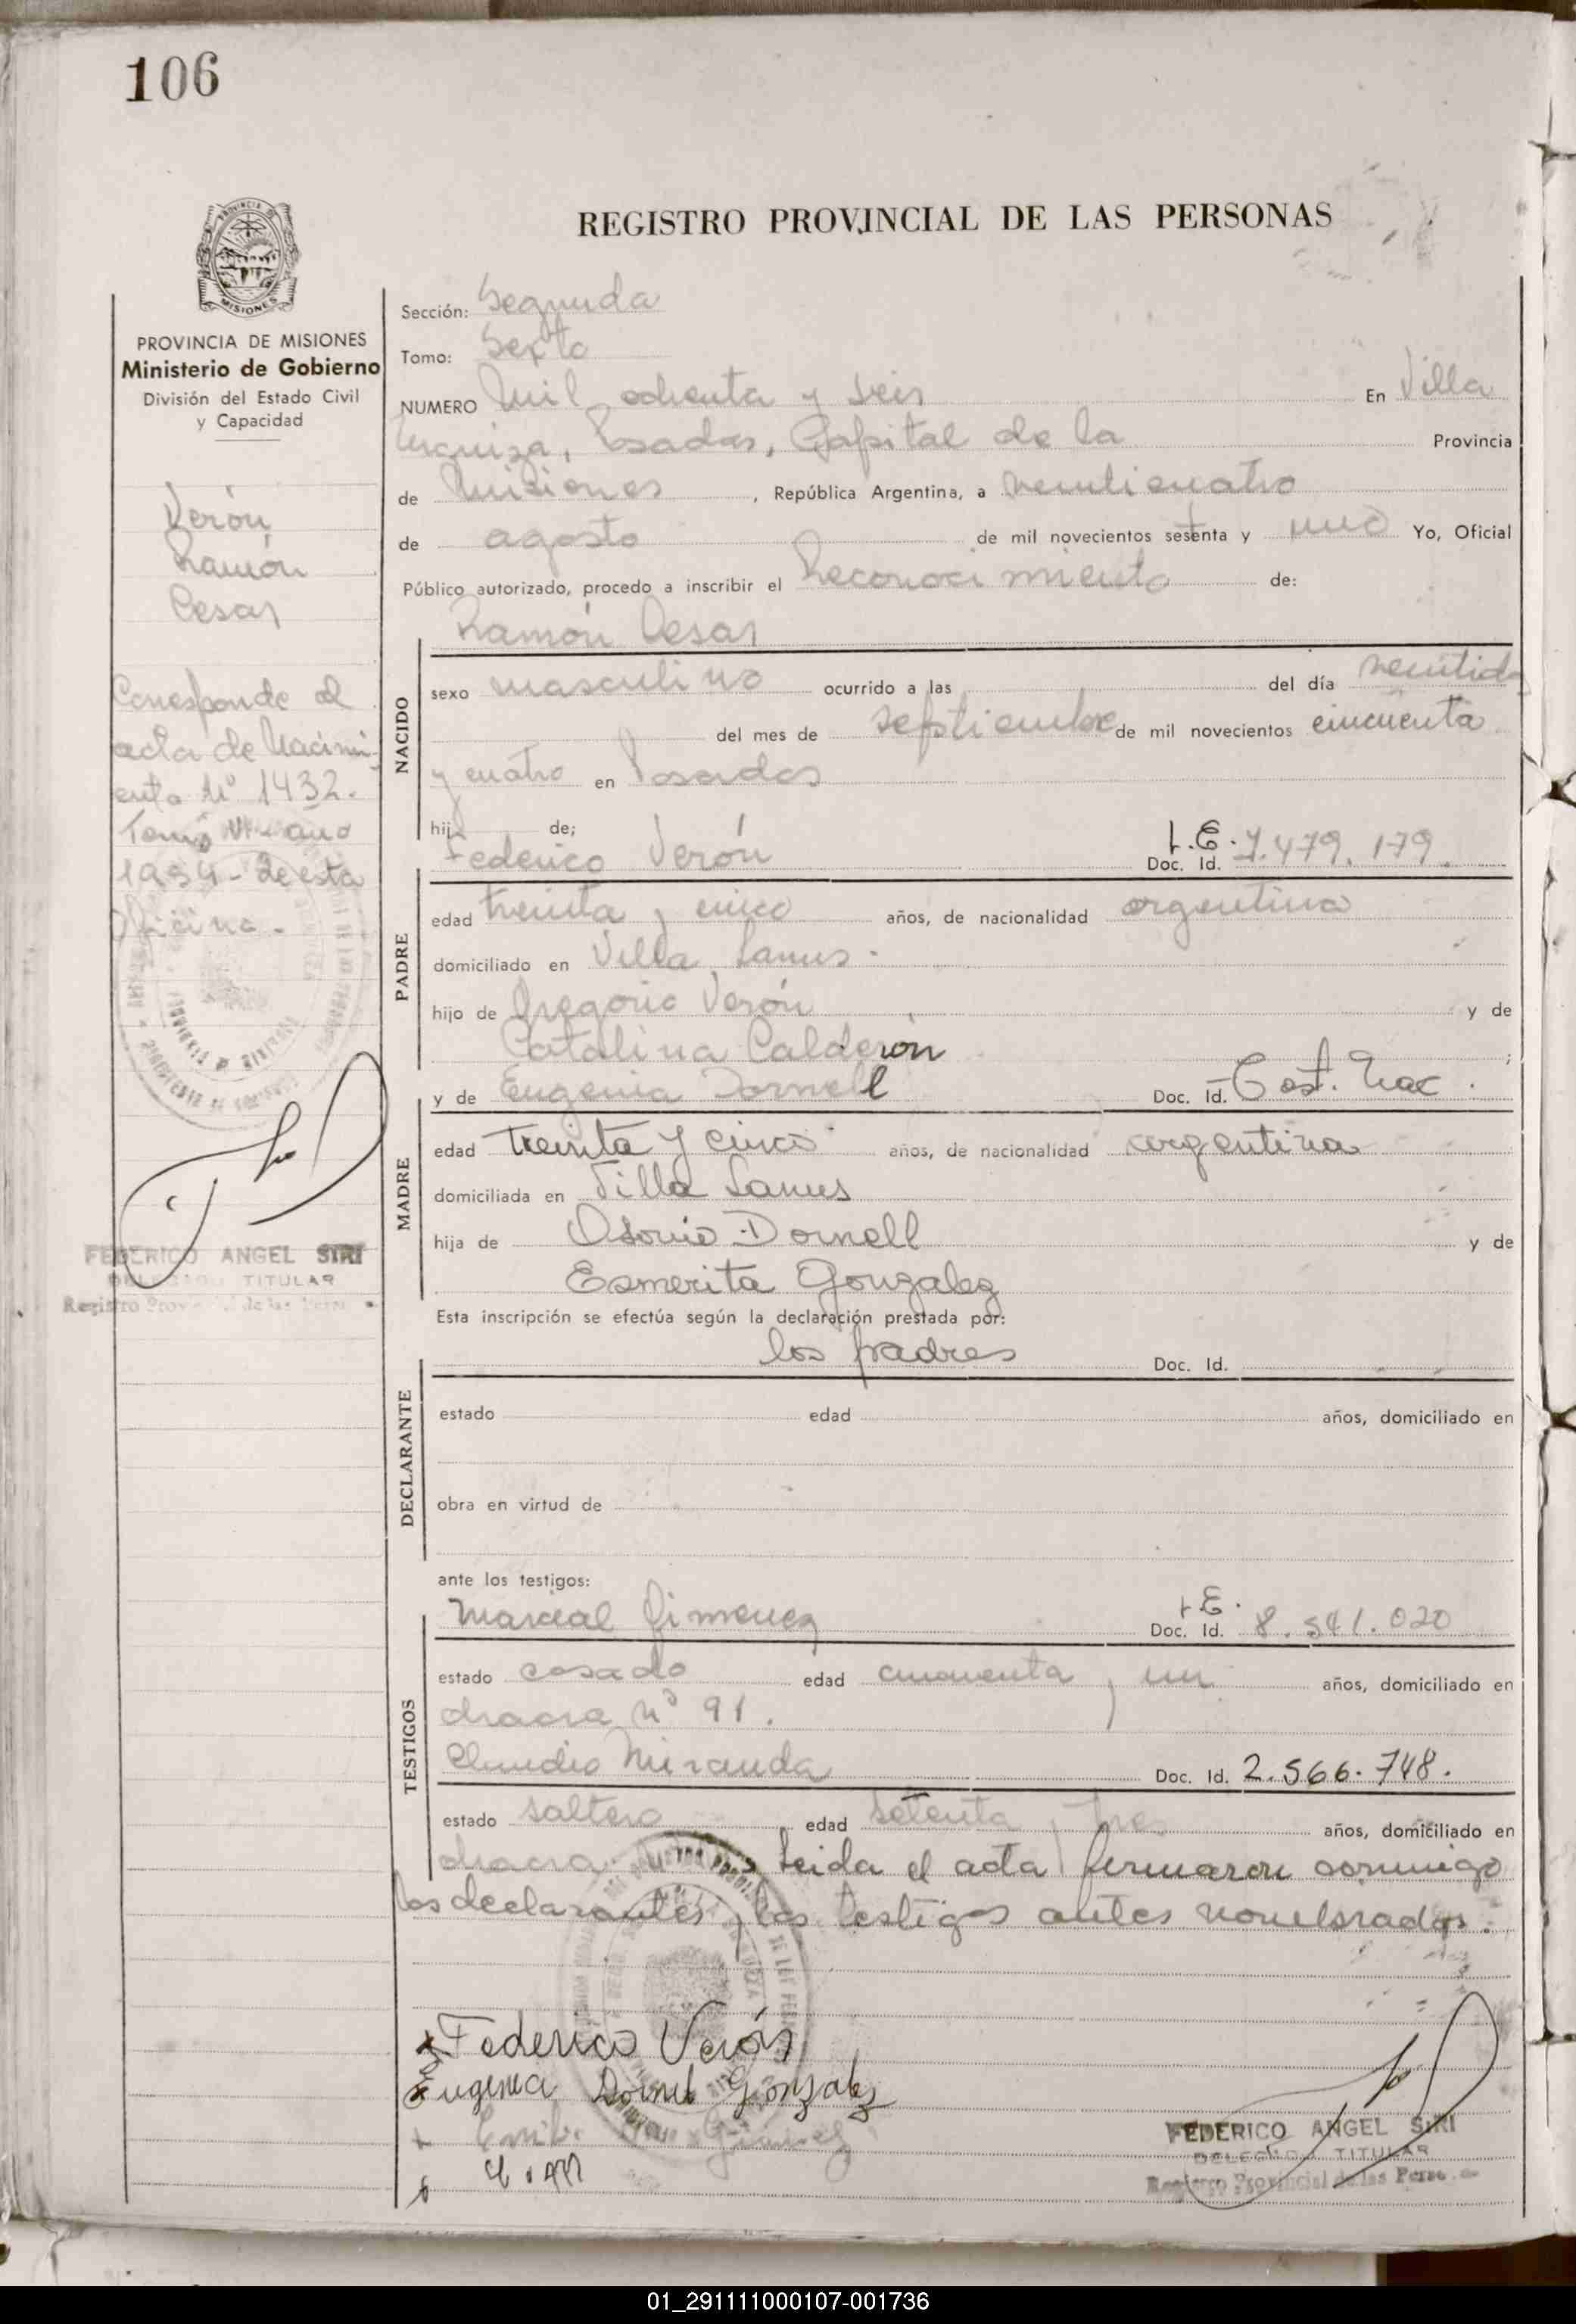 106
REGISTRO PROVINCIAL DE LAS PERSONAS
PROVINCIA DE MISIONES
MISIONES
PROVINCIA DE MISIONES
Ministerio de Gobierno
División del Estado Civil
y Capacidad
Verón
Ramón
Cesar
Corresponde al
acta de Nacimi-
ento Nº 1432.
Tomo año
1954 - de esta
Oficina.-
FEDERICO ANGEL SIRI
DELEGADO TITULAR
Registro Provincial de las Perso
Sección: Segunda
Tomo: Sexto
NUMERO Mil ochenta y seis En Villa
Urquiza, Posadas, Capital de la Provincia
de Misiones, República Argentina, a veinticuatro
de agosto de mil novecientos setenta y uno Yo, Oficial
Público autorizado, procedo a inscribir el Reconocimiento de:
Ramón Cesar
NACIDO
sexo masculino ocurrido a las del día veintidos
del mes de septiembre de mil novecientos cincuenta
y cuatro en Posadas
hij de;
Federico Verón L.E. Doc. Id. 7.479.179.
PADRE
edad treinta y cinco años, de nacionalidad argentina
domiciliado en Villa Lanus.
hijo de Gregorio Verón y de
Catalina Calderón ;
y de Eugenia Dornell Doc. Id. - Cert. Nac.
MADRE
edad treinta y cinco años, de nacionalidad argentina
domiciliada en Villa Lanus
hija de Dornell y de
Esmerita Gonzalez
Esta inscripción se efectúa según la declaración prestada por:
los padres Doc. Id.
DECLARANTE
estado edad años, domiciliado en
obra en virtud de
ante los testigos:
TESTIGOS
Marcial Gimenez L.E. Doc. Id. 8.541.020
estado casado edad cincuenta y un años, domiciliado en
chacra nº 91.
Claudio Miranda Doc. Id. 2.566.748.
estado soltero edad setenta y tres años, domiciliado en
chacra Leida el acta firmaron conmigo
los declarantes y los testigos antes nombrados.
Federico Verón
Eugenia Dornell Gonzalez
FEDERICO ANGEL SIRI
DELEGADO TITULAR
Registro Provincial de las Perso
01_291111000107-001736